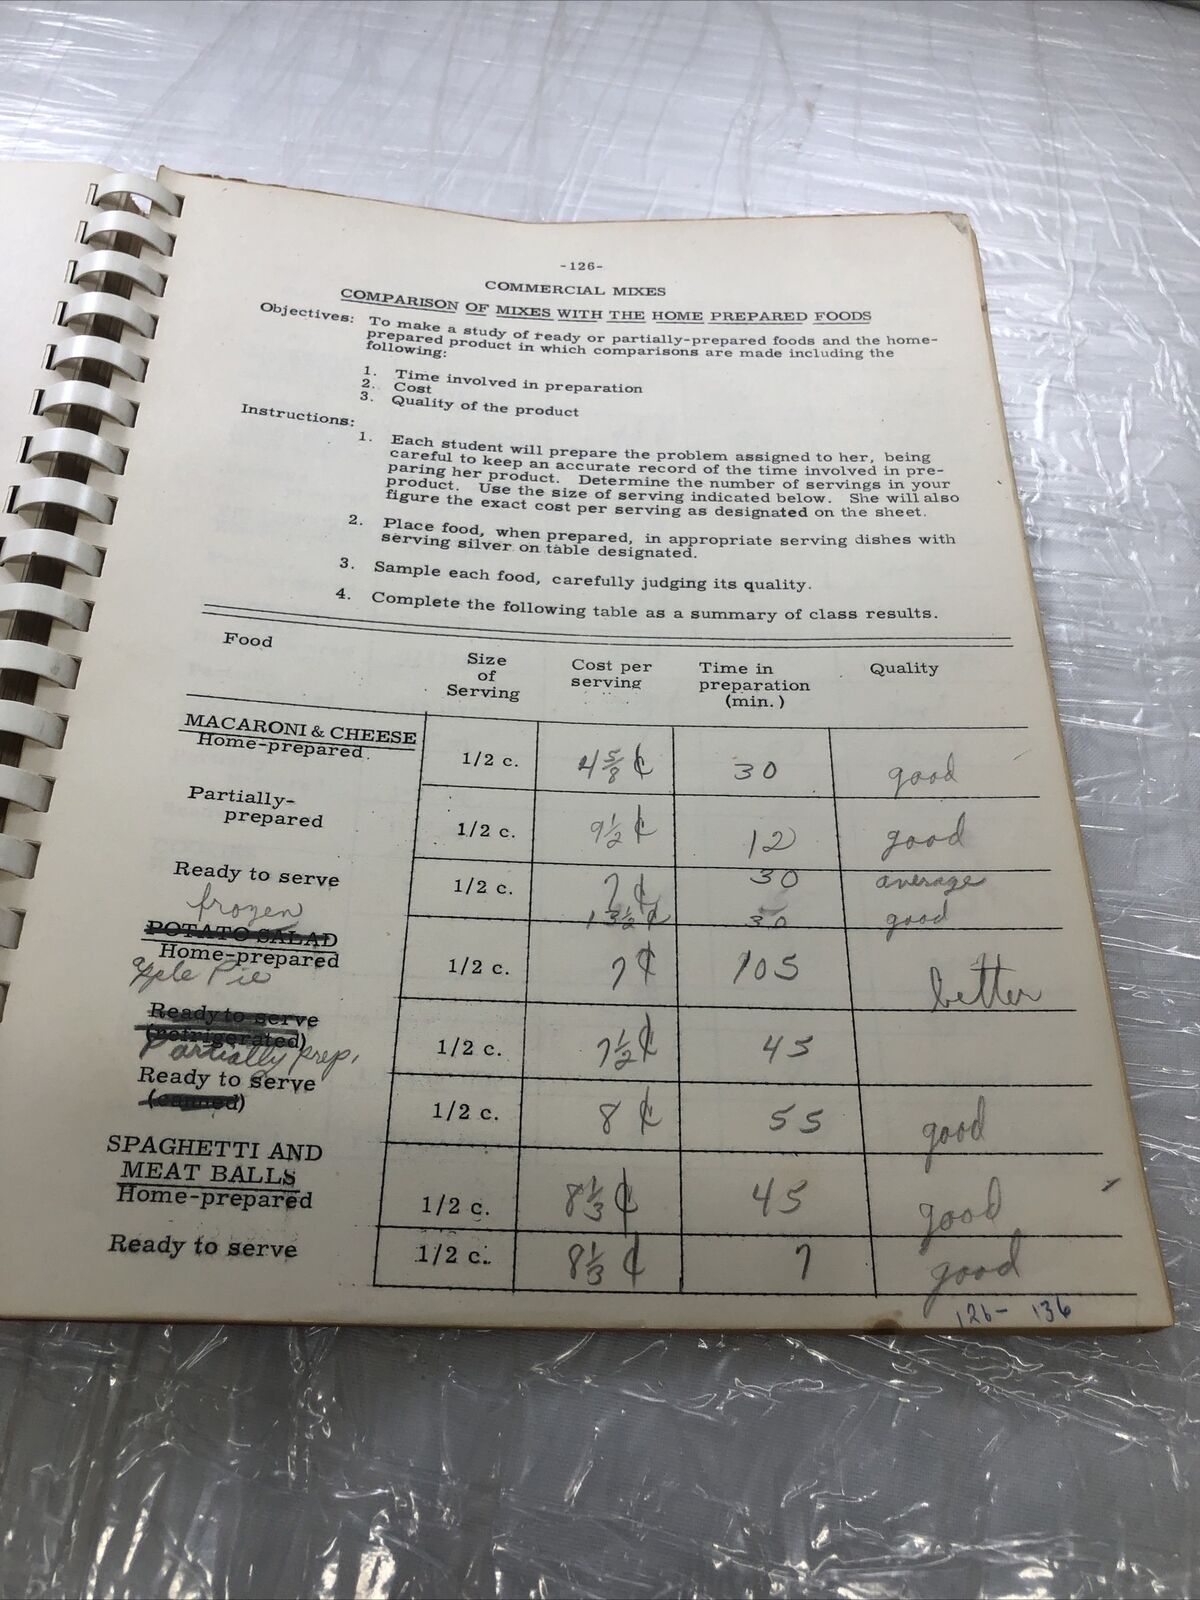 -126-
COMMERCIAL MIXES
COMPARISON OF MIXES WITH THE HOME PREPARED FOODS
Objectives: To make a study of ready or partially-prepared foods and the home-
prepared product in which comparisons are made including the
following:
1. Time involved in preparation
2. Cost
3. Quality of the product
Instructions:
1. Each student will prepare the problem assigned to her, being
careful to keep an accurate record of the time involved in pre-
paring her product. Determine the number of servings in your
product. Use the size of serving indicated below. She will also
figure the exact cost per serving as designated on the sheet.
2. Place food, when prepared, in appropriate serving dishes with
serving silver on table designated.
3. Sample each food, carefully judging its quality.
4. Complete the following table as a summary of class results.
Food Size of Serving Cost per serving Time in preparation (min.) Quality
MACARONI & CHEESE
Home-prepared 1/2 c. 4 5/8 ¢ 30 good
Partially-
prepared 1/2 c. 9 1/2 ¢ 12 good
Ready to serve 1/2 c. 7 ¢ 30 average
frozen 30 good
POTATO SALAD
Home-prepared 1/2 c. 7 ¢ 105 better
apple Pie
Ready to serve
(refrigerated) 1/2 c. 7 1/2 ¢ 45
Partially prep.
Ready to serve 1/2 c. 8 ¢ 55 good
(canned)
SPAGHETTI AND
MEAT BALLS
Home-prepared 1/2 c. 8 1/3 ¢ 45 good
Ready to serve 1/2 c. 8 1/3 ¢ 7 good
126- 136